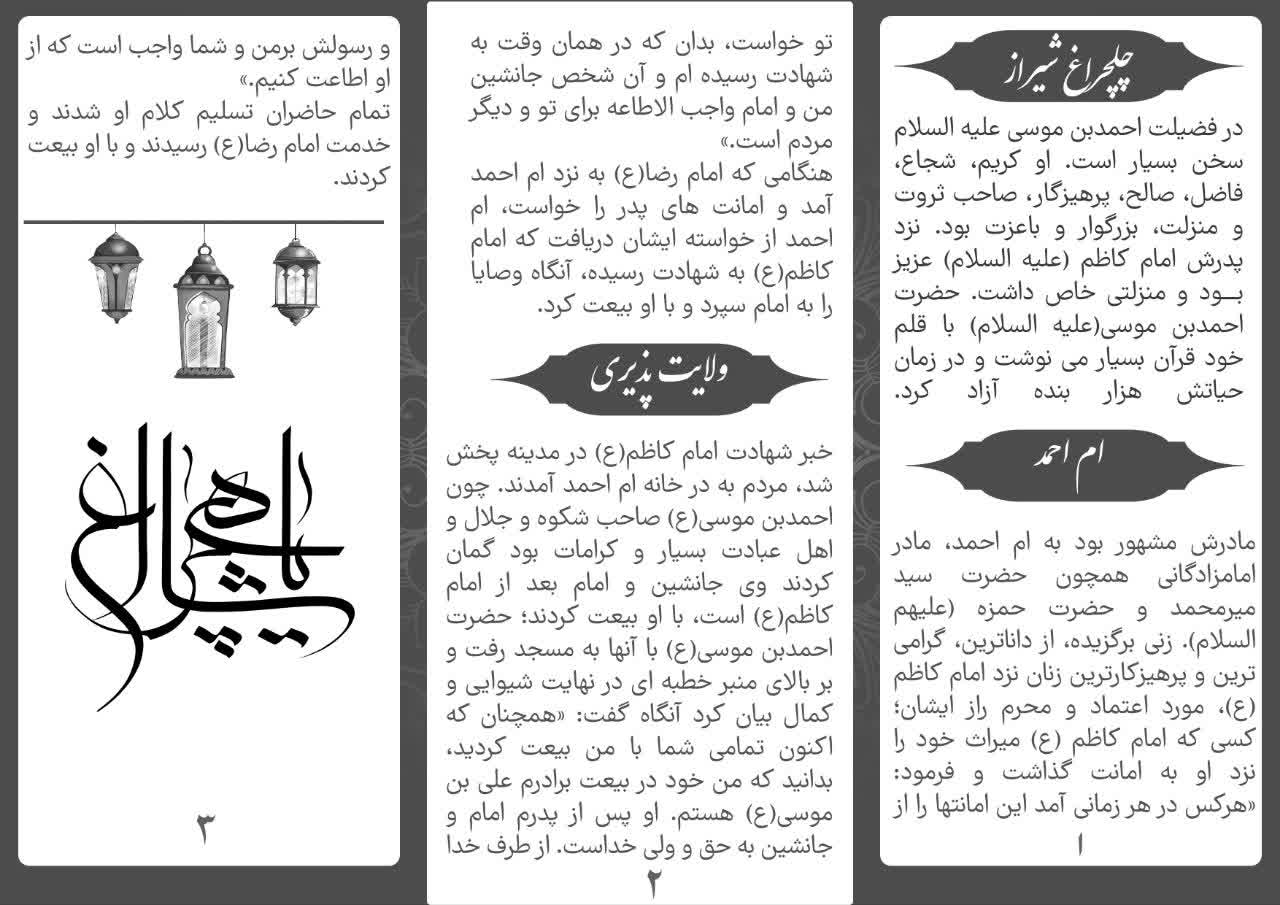 چلچراغ شیراز
در فضیلت احمدبن موسی علیه السلام
سخن بسیار است. او کریم، شجاع،
فاضل، صالح، پرهیزگار، صاحب ثروت
و منزلت، بزرگوار و باعزت بود. نزد
پدرش امام کاظم (علیه السلام) عزیز
بــود و منزلتی خاص داشت. حضرت
احمدبن موسی(علیه السلام) با قلم
خود قرآن بسیار می نوشت و در زمان
حیاتش هزار بنده آزاد کرد.
ام احمد
مادرش مشهور بود به ام احمد، مادر
امامزادگانی همچون حضرت سید
میرمحمد و حضرت حمزه (علیهم
السلام). زنی برگزیده، از داناترین، گرامی
ترین و پرهیزکارترین زنان نزد امام کاظم
(ع)، مورد اعتماد و محرم راز ایشان؛
کسی که امام کاظم (ع) میراث خود را
نزد او به امانت گذاشت و فرمود:
«هرکس در هر زمانی آمد این امانتها را از
۱
تو خواست، بدان که در همان وقت به
شهادت رسیده ام و آن شخص جانشین
من و امام واجب الاطاعه برای تو و دیگر
مردم است.»
هنگامی که امام رضا(ع) به نزد ام احمد
آمد و امانت های پدر را خواست، ام
احمد از خواسته ایشان دریافت که امام
کاظم(ع) به شهادت رسیده، آنگاه وصایا
را به امام سپرد و با او بیعت کرد.
ولایت پذیری
خبر شهادت امام کاظم(ع) در مدینه پخش
شد، مردم به در خانه ام احمد آمدند. چون
احمدبن موسی(ع) صاحب شکوه و جلال و
اهل عبادت بسیار و کرامات بود گمان
کردند وی جانشین و امام بعد از امام
کاظم(ع) است، با او بیعت کردند؛ حضرت
احمدبن موسی(ع) با آنها به مسجد رفت و
بر بالای منبر خطبه ای در نهایت شیوایی و
کمال بیان کرد آنگاه گفت: «همچنان که
اکنون تمامی شما با من بیعت کردید،
بدانید که من خود در بیعت برادرم علی بن
موسی(ع) هستم. او پس از پدرم امام و
جانشین به حق و ولی خداست. از طرف خدا
۲
و رسولش برمن و شما واجب است که از
او اطاعت کنیم.»
تمام حاضران تسلیم کلام او شدند و
خدمت امام رضا(ع) رسیدند و با او بیعت
کردند.
۳